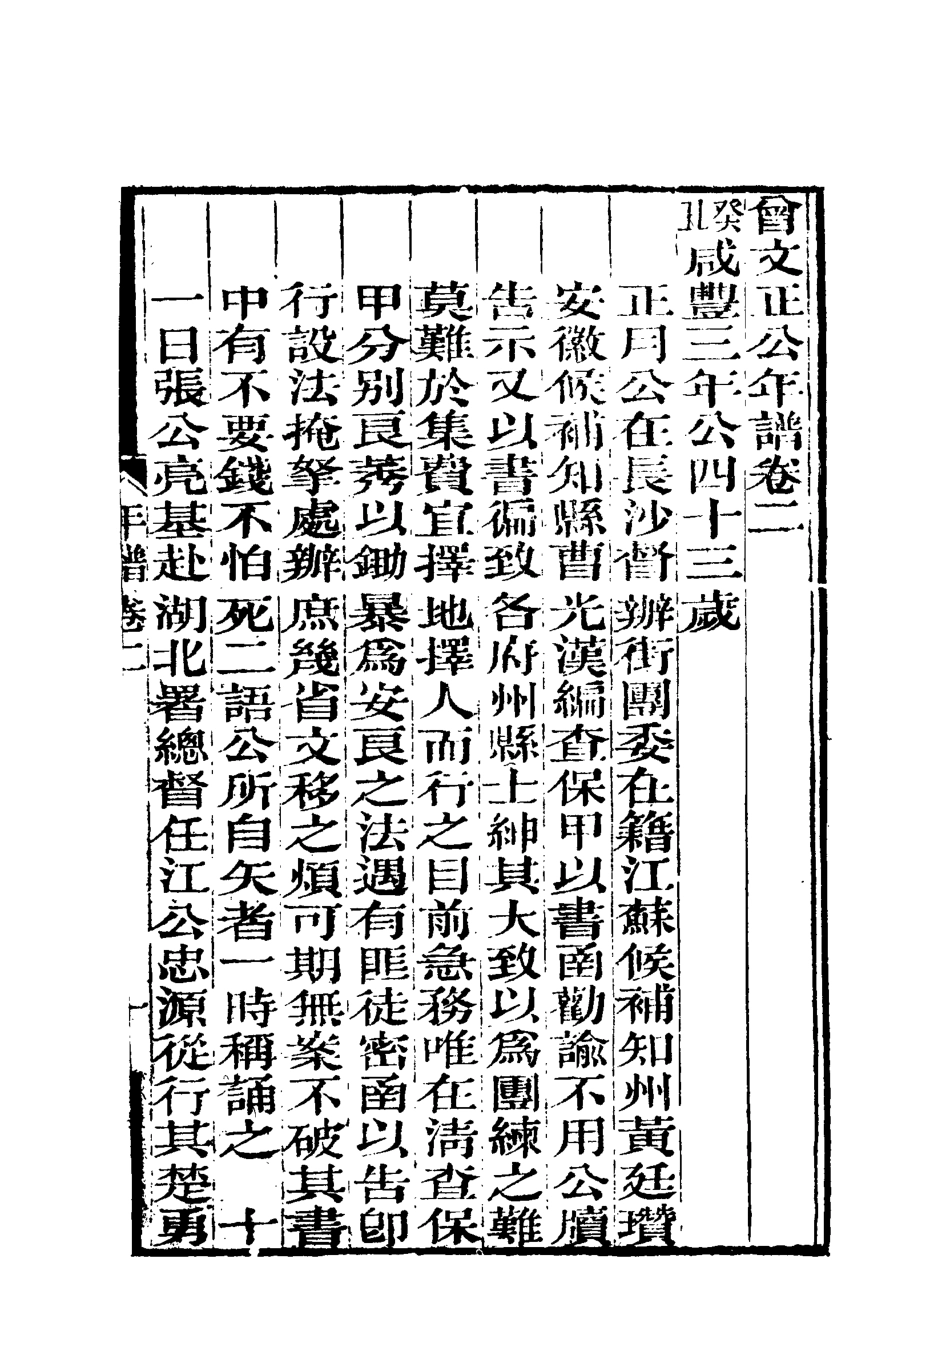 曾文正公年譜卷二
癸丑咸豐三年公四十三歲
正月公在長沙督辦街團委在籍江蘇候補知州黃廷瓚
安徽候補知縣曹光漢編查保甲以書函勸諭不用公牘
告示又以書徧致各府州縣士紳其大致以爲團練之難
莫難於集費宜擇地擇人而行之目前急務唯在清查保
甲分別良莠以鋤暴爲安良之法遇有匪徒密函以告即
行設法掩拏處辦庶幾省文移之煩可期無案不破其書
中有不要錢不怕死二語公所自矢者一時稱誦之 十
一日張公亮基赴湖北署總督任江公忠源從行其楚勇
年譜卷二 一